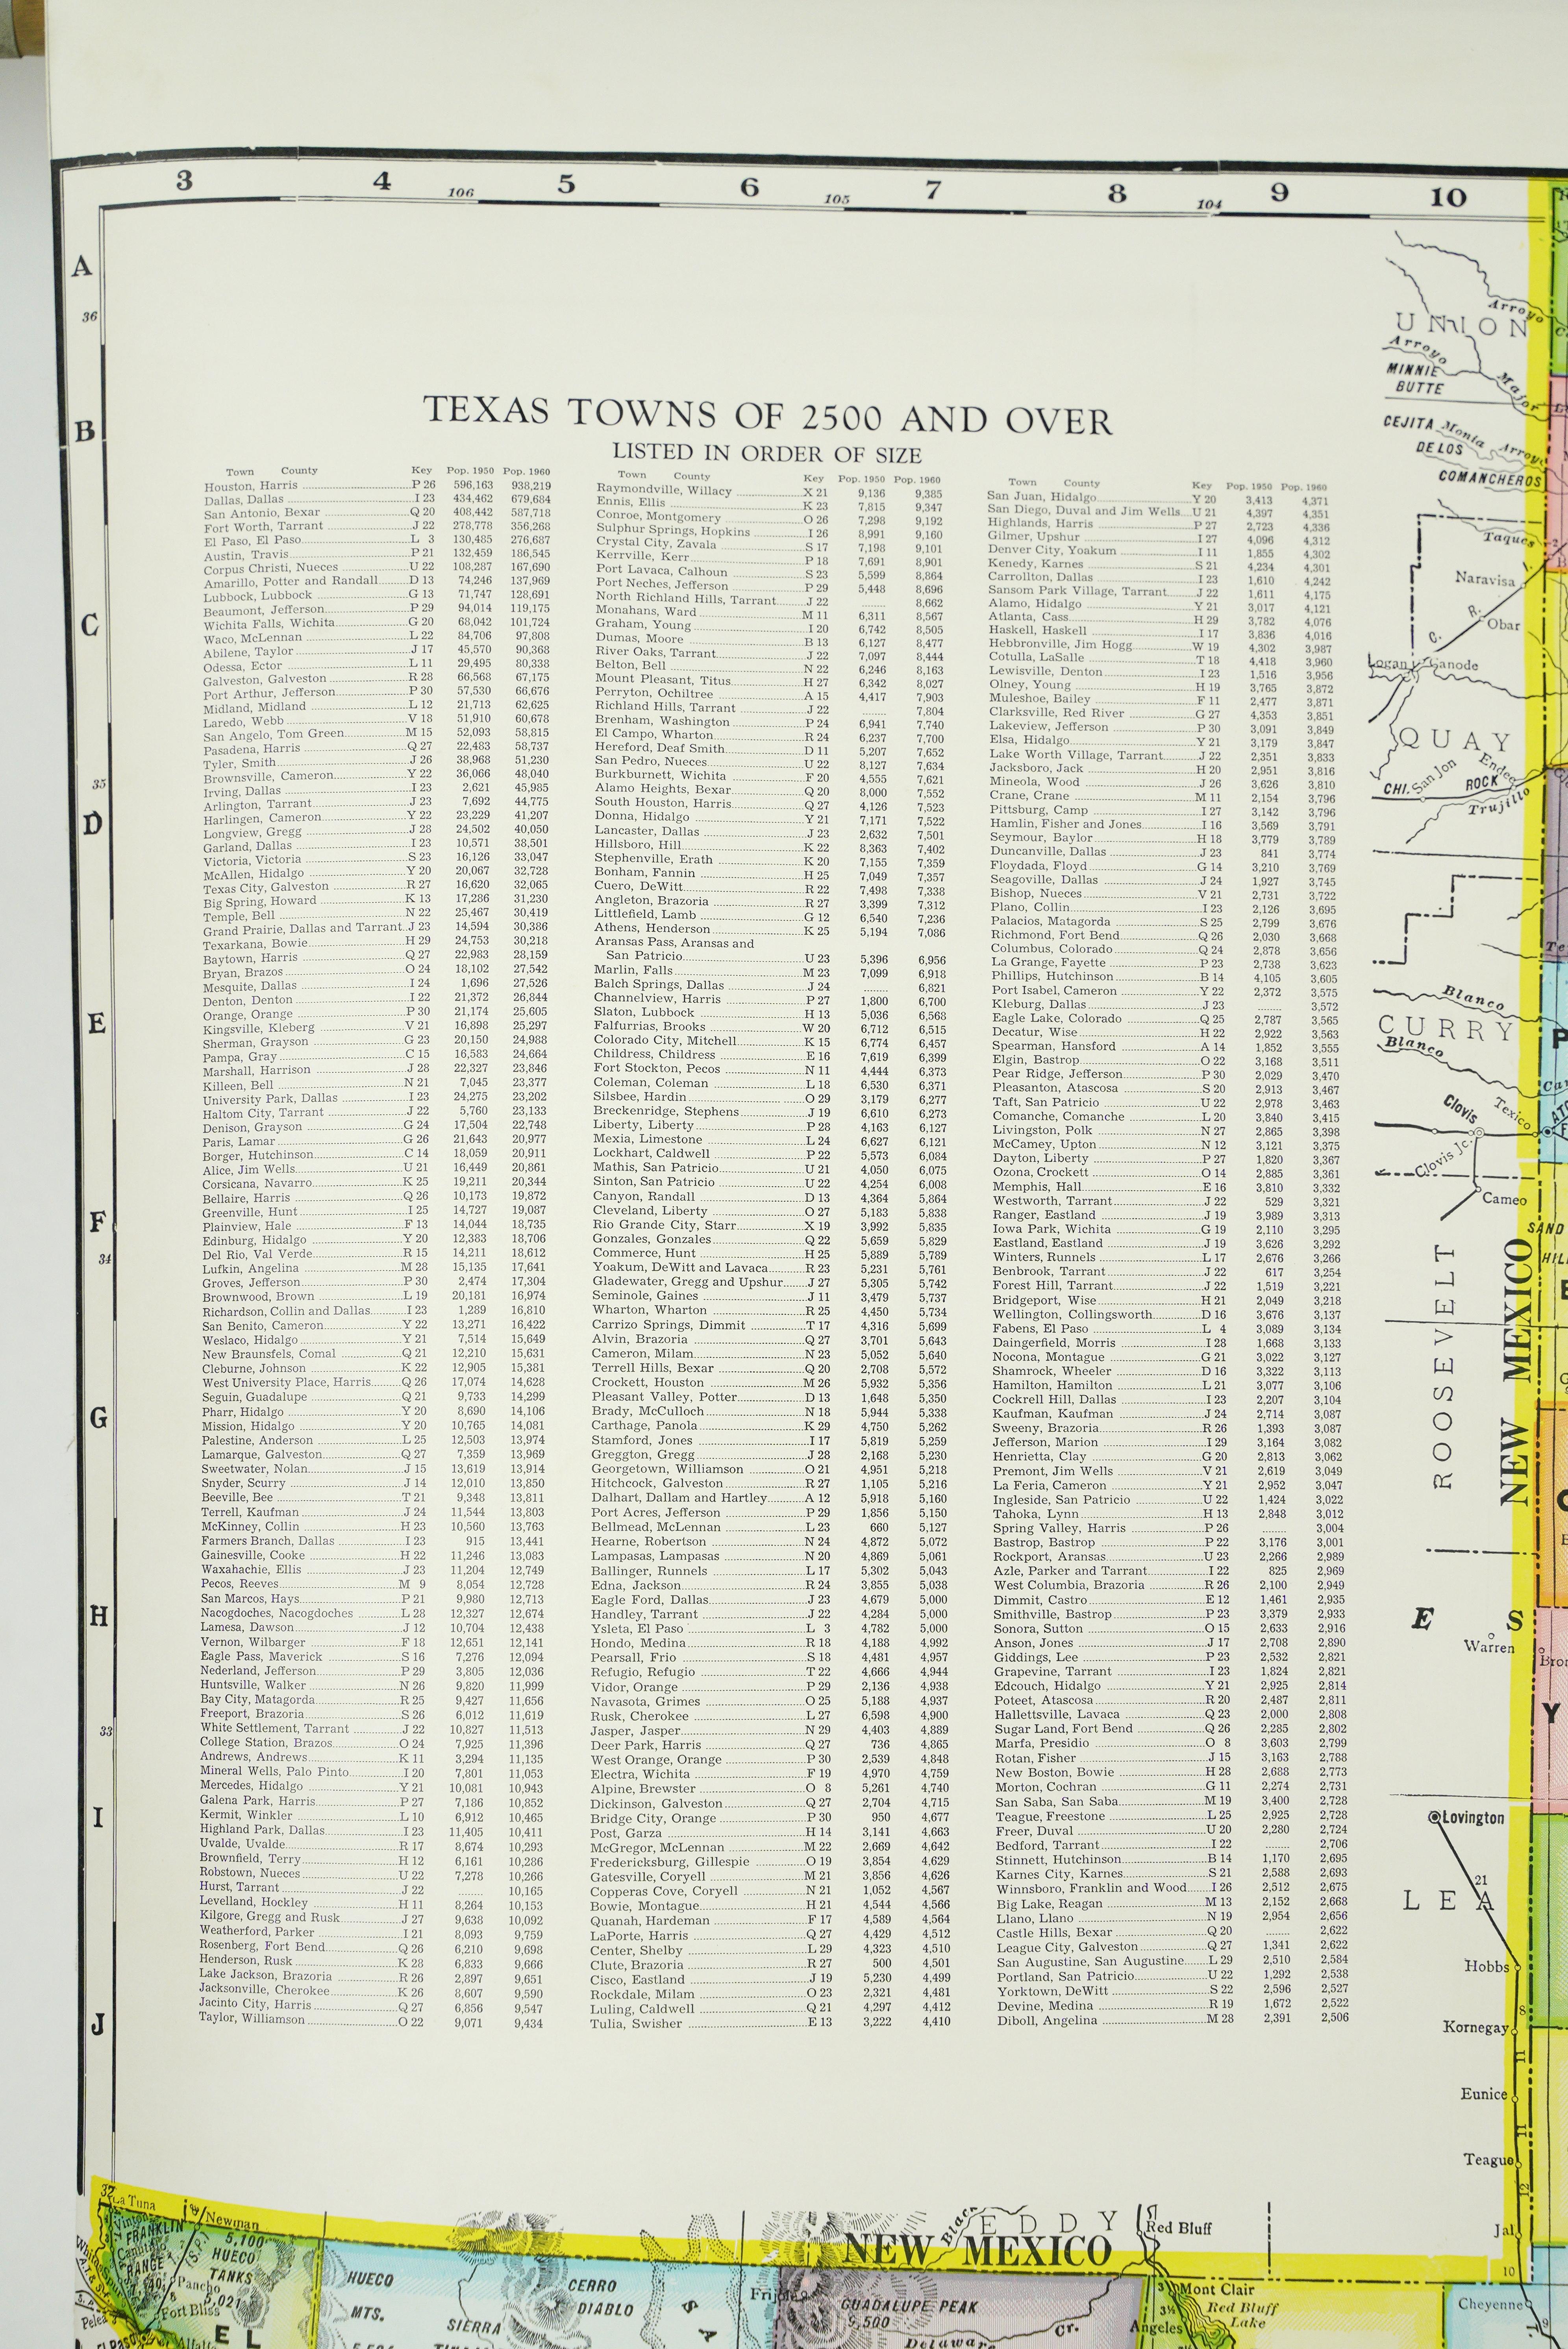 3 4 106 5 6 105 7 8 104 9 10
A
36
B
C
35
D
E
F
34
G
H
33
I
J
32
TEXAS TOWNS OF 2500 AND OVER
LISTED IN ORDER OF SIZE
Town County Key Pop. 1950 Pop. 1960
Houston, Harris P 26 596,163 938,219
Dallas, Dallas I 23 434,462 679,684
San Antonio, Bexar Q 20 408,442 587,718
Fort Worth, Tarrant J 22 278,778 356,268
El Paso, El Paso L 3 130,485 276,687
Austin, Travis P 21 132,459 186,545
Corpus Christi, Nueces U 22 108,287 167,690
Amarillo, Potter and Randall D 13 74,246 137,969
Lubbock, Lubbock G 13 71,747 128,691
Beaumont, Jefferson P 29 94,014 119,175
Wichita Falls, Wichita G 20 68,042 101,724
Waco, McLennan L 22 84,706 97,808
Abilene, Taylor J 17 45,570 90,368
Odessa, Ector L 11 29,495 80,338
Galveston, Galveston R 28 66,568 67,175
Port Arthur, Jefferson P 30 57,530 66,676
Midland, Midland L 12 21,713 62,625
Laredo, Webb V 18 51,910 60,678
San Angelo, Tom Green M 15 52,093 58,815
Pasadena, Harris Q 27 22,483 58,737
Tyler, Smith J 26 38,968 51,230
Brownsville, Cameron Y 22 36,066 48,040
Irving, Dallas I 23 2,621 45,985
Arlington, Tarrant J 23 7,692 44,775
Harlingen, Cameron Y 22 23,229 41,207
Longview, Gregg J 28 24,502 40,050
Garland, Dallas I 23 10,571 38,501
Victoria, Victoria S 23 16,126 33,047
McAllen, Hidalgo Y 20 20,067 32,728
Texas City, Galveston R 27 16,620 32,065
Big Spring, Howard K 13 17,286 31,230
Temple, Bell N 22 25,467 30,419
Grand Prairie, Dallas and Tarrant J 23 14,594 30,386
Texarkana, Bowie H 29 24,753 30,218
Baytown, Harris Q 27 22,983 28,159
Bryan, Brazos O 24 18,102 27,542
Mesquite, Dallas I 24 1,696 27,526
Denton, Denton I 22 21,372 26,844
Orange, Orange P 30 21,174 25,605
Kingsville, Kleberg V 21 16,898 25,297
Sherman, Grayson G 23 20,150 24,988
Pampa, Gray C 15 16,583 24,664
Marshall, Harrison J 28 22,327 23,846
Killeen, Bell N 21 7,045 23,377
University Park, Dallas I 23 24,275 23,202
Haltom City, Tarrant J 22 5,760 23,133
Denison, Grayson G 24 17,504 22,748
Paris, Lamar G 26 21,643 20,977
Borger, Hutchinson C 14 18,059 20,911
Alice, Jim Wells U 21 16,449 20,861
Corsicana, Navarro K 25 19,211 20,344
Bellaire, Harris Q 26 10,173 19,872
Greenville, Hunt I 25 14,727 19,087
Plainview, Hale F 13 14,044 18,735
Edinburg, Hidalgo Y 20 12,383 18,706
Del Rio, Val Verde R 15 14,211 18,612
Lufkin, Angelina M 28 15,135 17,641
Groves, Jefferson P 30 2,474 17,304
Brownwood, Brown L 19 20,181 16,974
Richardson, Collin and Dallas I 23 1,289 16,810
San Benito, Cameron Y 22 13,271 16,422
Weslaco, Hidalgo Y 21 7,514 15,649
New Braunsfels, Comal Q 21 12,210 15,631
Cleburne, Johnson K 22 12,905 15,381
West University Place, Harris Q 26 17,074 14,628
Seguin, Guadalupe Q 21 9,733 14,299
Pharr, Hidalgo Y 20 8,690 14,106
Mission, Hidalgo Y 20 10,765 14,081
Palestine, Anderson L 25 12,503 13,974
Lamarque, Galveston Q 27 7,359 13,969
Sweetwater, Nolan J 15 13,619 13,914
Snyder, Scurry J 14 12,010 13,850
Beeville, Bee T 21 9,348 13,811
Terrell, Kaufman J 24 11,544 13,803
McKinney, Collin H 23 10,560 13,763
Farmers Branch, Dallas I 23 915 13,441
Gainesville, Cooke H 22 11,246 13,083
Waxahachie, Ellis J 23 11,204 12,749
Pecos, Reeves M 9 8,054 12,728
San Marcos, Hays P 21 9,980 12,713
Nacogdoches, Nacogdoches L 28 12,327 12,674
Lamesa, Dawson J 12 10,704 12,438
Vernon, Wilbarger F 18 12,651 12,141
Eagle Pass, Maverick S 16 7,276 12,094
Nederland, Jefferson P 29 3,805 12,036
Huntsville, Walker N 26 9,820 11,999
Bay City, Matagorda R 25 9,427 11,656
Freeport, Brazoria S 26 6,012 11,619
White Settlement, Tarrant J 22 10,827 11,513
College Station, Brazos O 24 7,925 11,396
Andrews, Andrews K 11 3,294 11,135
Mineral Wells, Palo Pinto I 20 7,801 11,053
Mercedes, Hidalgo Y 21 10,081 10,943
Galena Park, Harris P 27 7,186 10,852
Kermit, Winkler L 10 6,912 10,465
Highland Park, Dallas I 23 11,405 10,411
Uvalde, Uvalde R 17 8,674 10,293
Brownfield, Terry H 12 6,161 10,286
Robstown, Nueces U 22 7,278 10,266
Hurst, Tarrant J 22 ........ 10,165
Levelland, Hockley H 11 8,264 10,153
Kilgore, Gregg and Rusk J 27 9,638 10,092
Weatherford, Parker I 21 8,093 9,759
Rosenberg, Fort Bend Q 26 6,210 9,698
Henderson, Rusk K 28 6,833 9,666
Lake Jackson, Brazoria R 26 2,897 9,651
Jacksonville, Cherokee K 26 8,607 9,590
Jacinto City, Harris Q 27 6,856 9,547
Taylor, Williamson O 22 9,071 9,434
Town County Key Pop. 1950 Pop. 1960
Raymondville, Willacy X 21 9,136 9,385
Ennis, Ellis K 23 7,815 9,347
Conroe, Montgomery O 26 7,298 9,192
Sulphur Springs, Hopkins I 26 8,991 9,160
Crystal City, Zavala S 17 7,198 9,101
Kerrville, Kerr P 18 7,691 8,901
Port Lavaca, Calhoun S 23 5,599 8,864
Port Neches, Jefferson P 29 5,448 8,696
North Richland Hills, Tarrant J 22 ........ 8,662
Monahans, Ward M 11 6,311 8,567
Graham, Young I 20 6,742 8,505
Dumas, Moore B 13 6,127 8,477
River Oaks, Tarrant J 22 7,097 8,444
Belton, Bell N 22 6,246 8,163
Mount Pleasant, Titus H 27 6,342 8,027
Perryton, Ochiltree A 15 4,417 7,903
Richland Hills, Tarrant J 22 ........ 7,804
Brenham, Washington P 24 6,941 7,740
El Campo, Wharton R 24 6,237 7,700
Hereford, Deaf Smith D 11 5,207 7,652
San Pedro, Nueces U 22 8,127 7,634
Burkburnett, Wichita F 20 4,555 7,621
Alamo Heights, Bexar Q 20 8,000 7,552
South Houston, Harris Q 27 4,126 7,523
Donna, Hidalgo Y 21 7,171 7,522
Lancaster, Dallas J 23 2,632 7,501
Hillsboro, Hill K 22 8,363 7,402
Stephenville, Erath K 20 7,155 7,359
Bonham, Fannin H 25 7,049 7,357
Cuero, DeWitt R 22 7,498 7,338
Angleton, Brazoria R 27 3,399 7,312
Littlefield, Lamb G 12 6,540 7,236
Athens, Henderson K 25 5,194 7,086
Aransas Pass, Aransas and
San Patricio U 23 5,396 6,956
Marlin, Falls M 23 7,099 6,918
Balch Springs, Dallas J 24 ........ 6,821
Channelview, Harris P 27 1,800 6,700
Slaton, Lubbock H 13 5,036 6,568
Falfurrias, Brooks W 20 6,712 6,515
Colorado City, Mitchell K 15 6,774 6,457
Childress, Childress E 16 7,619 6,399
Fort Stockton, Pecos N 11 4,444 6,373
Coleman, Coleman L 18 6,530 6,371
Silsbee, Hardin O 29 3,179 6,277
Breckenridge, Stephens J 19 6,610 6,273
Liberty, Liberty P 28 4,163 6,127
Mexia, Limestone L 24 6,627 6,121
Lockhart, Caldwell P 22 5,573 6,084
Mathis, San Patricio U 21 4,050 6,075
Sinton, San Patricio U 22 4,254 6,008
Canyon, Randall D 13 4,364 5,864
Cleveland, Liberty O 27 5,183 5,838
Rio Grande City, Starr X 19 3,992 5,835
Gonzales, Gonzales Q 22 5,659 5,829
Commerce, Hunt H 25 5,889 5,789
Yoakum, DeWitt and Lavaca R 23 5,231 5,761
Gladewater, Gregg and Upshur J 27 5,305 5,742
Seminole, Gaines J 11 3,479 5,737
Wharton, Wharton R 25 4,450 5,734
Carrizo Springs, Dimmit T 17 4,316 5,699
Alvin, Brazoria Q 27 3,701 5,643
Cameron, Milam N 23 5,052 5,640
Terrell Hills, Bexar Q 20 2,708 5,572
Crockett, Houston M 26 5,932 5,356
Pleasant Valley, Potter D 13 1,648 5,350
Brady, McCulloch N 18 5,944 5,338
Carthage, Panola K 29 4,750 5,262
Stamford, Jones I 17 5,819 5,259
Greggton, Gregg J 28 2,168 5,230
Georgetown, Williamson O 21 4,951 5,218
Hitchcock, Galveston R 27 1,105 5,216
Dalhart, Dallam and Hartley A 12 5,918 5,160
Port Acres, Jefferson P 29 1,856 5,150
Bellmead, McLennan L 23 660 5,127
Hearne, Robertson N 24 4,872 5,072
Lampasas, Lampasas N 20 4,869 5,061
Ballinger, Runnels L 17 5,302 5,043
Edna, Jackson R 24 3,855 5,038
Eagle Ford, Dallas J 23 4,679 5,000
Handley, Tarrant J 22 4,284 5,000
Ysleta, El Paso L 3 4,782 5,000
Hondo, Medina R 18 4,188 4,992
Pearsall, Frio S 18 4,481 4,957
Refugio, Refugio T 22 4,666 4,944
Vidor, Orange P 29 2,136 4,938
Navasota, Grimes O 25 5,188 4,937
Rusk, Cherokee L 27 6,598 4,900
Jasper, Jasper N 29 4,403 4,889
Deer Park, Harris Q 27 736 4,865
West Orange, Orange P 30 2,539 4,848
Electra, Wichita F 19 4,970 4,759
Alpine, Brewster O 8 5,261 4,740
Dickinson, Galveston Q 27 2,704 4,715
Bridge City, Orange P 30 950 4,677
Post, Garza H 14 3,141 4,663
McGregor, McLennan M 22 2,669 4,642
Fredericksburg, Gillespie O 19 3,854 4,629
Gatesville, Coryell M 21 3,856 4,626
Copperas Cove, Coryell N 21 1,052 4,567
Bowie, Montague H 21 4,544 4,566
Quanah, Hardeman F 17 4,589 4,564
LaPorte, Harris Q 27 4,429 4,512
Center, Shelby L 29 4,323 4,510
Clute, Brazoria R 27 500 4,501
Cisco, Eastland J 19 5,230 4,499
Rockdale, Milam O 23 2,321 4,481
Luling, Caldwell Q 21 4,297 4,412
Tulia, Swisher E 13 3,222 4,410
Town County Key Pop. 1950 Pop. 1960
San Juan, Hidalgo Y 20 3,413 4,371
San Diego, Duval and Jim Wells U 21 4,397 4,351
Highlands, Harris P 27 2,723 4,336
Gilmer, Upshur I 27 4,096 4,312
Denver City, Yoakum I 11 1,855 4,302
Kenedy, Karnes S 21 4,234 4,301
Carrollton, Dallas I 23 1,610 4,242
Sansom Park Village, Tarrant J 22 1,611 4,175
Alamo, Hidalgo Y 21 3,017 4,121
Atlanta, Cass H 29 3,782 4,076
Haskell, Haskell I 17 3,836 4,016
Hebbronville, Jim Hogg W 19 4,302 3,987
Cotulla, LaSalle T 18 4,418 3,960
Lewisville, Denton I 23 1,516 3,956
Olney, Young H 19 3,765 3,872
Muleshoe, Bailey F 11 2,477 3,871
Clarksville, Red River G 27 4,353 3,851
Lakeview, Jefferson P 30 3,091 3,849
Elsa, Hidalgo Y 21 3,179 3,847
Lake Worth Village, Tarrant J 22 2,351 3,833
Jacksboro, Jack H 20 2,951 3,816
Mineola, Wood J 26 3,626 3,810
Crane, Crane M 11 2,154 3,796
Pittsburg, Camp I 27 3,142 3,796
Hamlin, Fisher and Jones I 16 3,569 3,791
Seymour, Baylor H 18 3,779 3,789
Duncanville, Dallas J 23 841 3,774
Floydada, Floyd G 14 3,210 3,769
Seagoville, Dallas J 24 1,927 3,745
Bishop, Nueces V 21 2,731 3,722
Plano, Collin I 23 2,126 3,695
Palacios, Matagorda S 25 2,799 3,676
Richmond, Fort Bend Q 26 2,030 3,668
Columbus, Colorado Q 24 2,878 3,656
La Grange, Fayette P 23 2,738 3,623
Phillips, Hutchinson B 14 4,105 3,605
Port Isabel, Cameron Y 22 2,372 3,575
Kleburg, Dallas J 23 ........ 3,572
Eagle Lake, Colorado Q 25 2,787 3,565
Decatur, Wise H 22 2,922 3,563
Spearman, Hansford A 14 1,852 3,555
Elgin, Bastrop O 22 3,168 3,511
Pear Ridge, Jefferson P 30 2,029 3,470
Pleasanton, Atascosa S 20 2,913 3,467
Taft, San Patricio U 22 2,978 3,463
Comanche, Comanche L 20 3,840 3,415
Livingston, Polk N 27 2,865 3,398
McCamey, Upton N 12 3,121 3,375
Dayton, Liberty P 27 1,820 3,367
Ozona, Crockett O 14 2,885 3,361
Memphis, Hall E 16 3,810 3,332
Westworth, Tarrant J 22 529 3,321
Ranger, Eastland J 19 3,989 3,313
Iowa Park, Wichita G 19 2,110 3,295
Eastland, Eastland J 19 3,626 3,292
Winters, Runnels L 17 2,676 3,266
Benbrook, Tarrant J 22 617 3,254
Forest Hill, Tarrant J 22 1,519 3,221
Bridgeport, Wise H 21 2,049 3,218
Wellington, Collingsworth D 16 3,676 3,137
Fabens, El Paso L 4 3,089 3,134
Daingerfield, Morris I 28 1,668 3,133
Nocona, Montague G 21 3,022 3,127
Shamrock, Wheeler D 16 3,322 3,113
Hamilton, Hamilton L 21 3,077 3,106
Cockrell Hill, Dallas I 23 2,207 3,104
Kaufman, Kaufman J 24 2,714 3,087
Sweeny, Brazoria R 26 1,393 3,087
Jefferson, Marion I 29 3,164 3,082
Henrietta, Clay G 20 2,813 3,062
Premont, Jim Wells V 21 2,619 3,049
La Feria, Cameron Y 21 2,952 3,047
Ingleside, San Patricio U 22 1,424 3,022
Tahoka, Lynn H 13 2,848 3,012
Spring Valley, Harris P 26 ........ 3,004
Bastrop, Bastrop P 22 3,176 3,001
Rockport, Aransas U 23 2,266 2,989
Azle, Parker and Tarrant I 22 825 2,969
West Columbia, Brazoria R 26 2,100 2,949
Dimmit, Castro E 12 1,461 2,935
Smithville, Bastrop P 23 3,379 2,933
Sonora, Sutton O 15 2,633 2,916
Anson, Jones J 17 2,708 2,890
Giddings, Lee P 23 2,532 2,821
Grapevine, Tarrant I 23 1,824 2,821
Edcouch, Hidalgo Y 21 2,925 2,814
Poteet, Atascosa R 20 2,487 2,811
Hallettsville, Lavaca Q 23 2,000 2,808
Sugar Land, Fort Bend Q 26 2,285 2,802
Marfa, Presidio O 8 3,603 2,799
Rotan, Fisher J 15 3,163 2,788
New Boston, Bowie H 28 2,688 2,773
Morton, Cochran G 11 2,274 2,731
San Saba, San Saba M 19 3,400 2,728
Teague, Freestone L 25 2,925 2,728
Freer, Duval U 20 2,280 2,724
Bedford, Tarrant I 22 ........ 2,706
Stinnett, Hutchinson B 14 1,170 2,695
Karnes City, Karnes S 21 2,588 2,693
Winnsboro, Franklin and Wood I 26 2,512 2,675
Big Lake, Reagan M 13 2,152 2,668
Llano, Llano N 19 2,954 2,656
Castle Hills, Bexar Q 20 ........ 2,622
League City, Galveston Q 27 1,341 2,622
San Augustine, San Augustine L 29 2,510 2,584
Portland, San Patricio U 22 1,292 2,538
Yorktown, DeWitt S 22 2,596 2,527
Devine, Medina R 19 1,672 2,522
Diboll, Angelina M 28 2,391 2,506
Arroyo
UNION
Arroyo
MINNIE
BUTTE
Major
CEJITA
DE LOS
COMANCHEROS
Monia Arroyo
Taques
Naravisa
C. R.
Obar
Logan
Canode
QUAY
San Jon
Endee
CHI. ROCK
Trujillo
Blanco
CURRY
Blanco
Clovis
Texico
Clovis Jc.
Cameo
SAND
HILL
ROOSEVELT
NEW MEXICO
E S
Warren
Y
Lovington
21
LEA
Hobbs
8
Kornegay
11
Eunice
11
Teague
12
Jal
10
La Tuna
Newman
FRANKLIN
RANGE
5,100
HUECO
TANKS
Pancho
5,021
Fort Bliss
EL
HUECO
MTS.
SIERRA
CERRO
DIABLO
Frijole
Black
EDDY
NEW MEXICO
Red Bluff
GUADALUPE PEAK
9,500
Delaware
Cr.
Mont Clair
Red Bluff
Lake
Angeles
Cheyenne